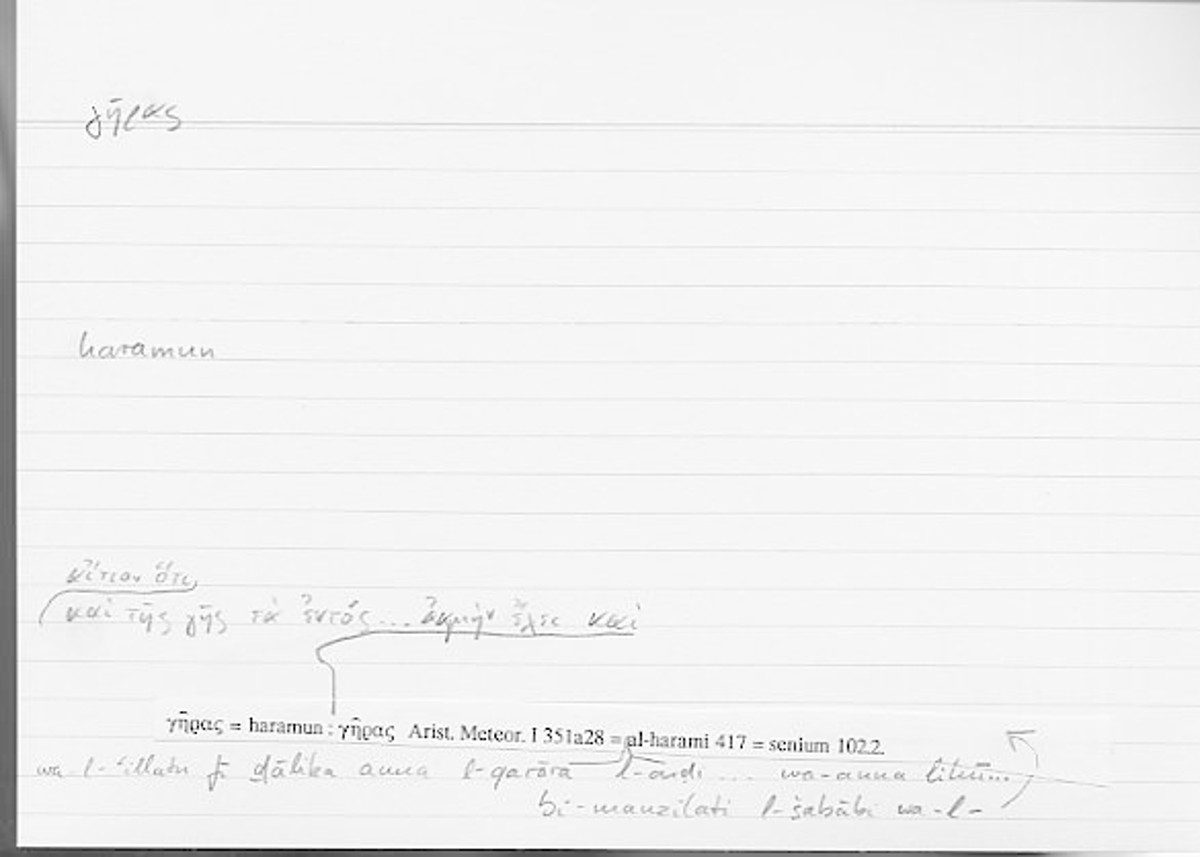 γῆρας
haramun
αἴτιον ὅτι
καὶ τῆς γῆς τὰ ἐντός... ἀκμὴν ἔχει καὶ
γῆρας = haramun : γῆρας Arist. Meteor. I 351a28 = al-harami 417 = senium 102.2.
wa-l-ʿillatu fī ḏālika anna l-qarāra l-arḍi ... wa-anna
bi-manzilati l-šabābi wa-l-